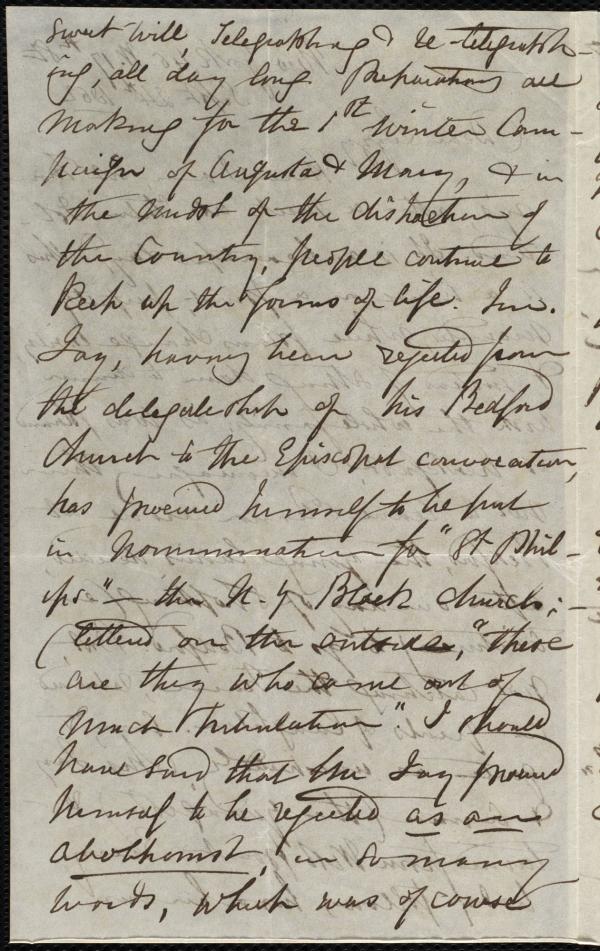 sweet will, Telegraphing & re-telegraph-
ing, all day long. Preparations are
making for the 1st winter Cam-
paign of Augusta & Mary, & in
the midst of the distraction of
the Country, people continue to
Keep up the forms of life. Jno.
Jay, having been rejected from
the delegateship of his Bedford
Church to the Episcopal convocation,
has procured himself to be put
in nomination for "St Phil-
ips" — the N. Y Black church; —
(lettered on the outside, "these
are they who came out of
much tribulation". I should
have said that the Jay procured
himself to be rejected as an
abolitionist, in so many
words, which was of course